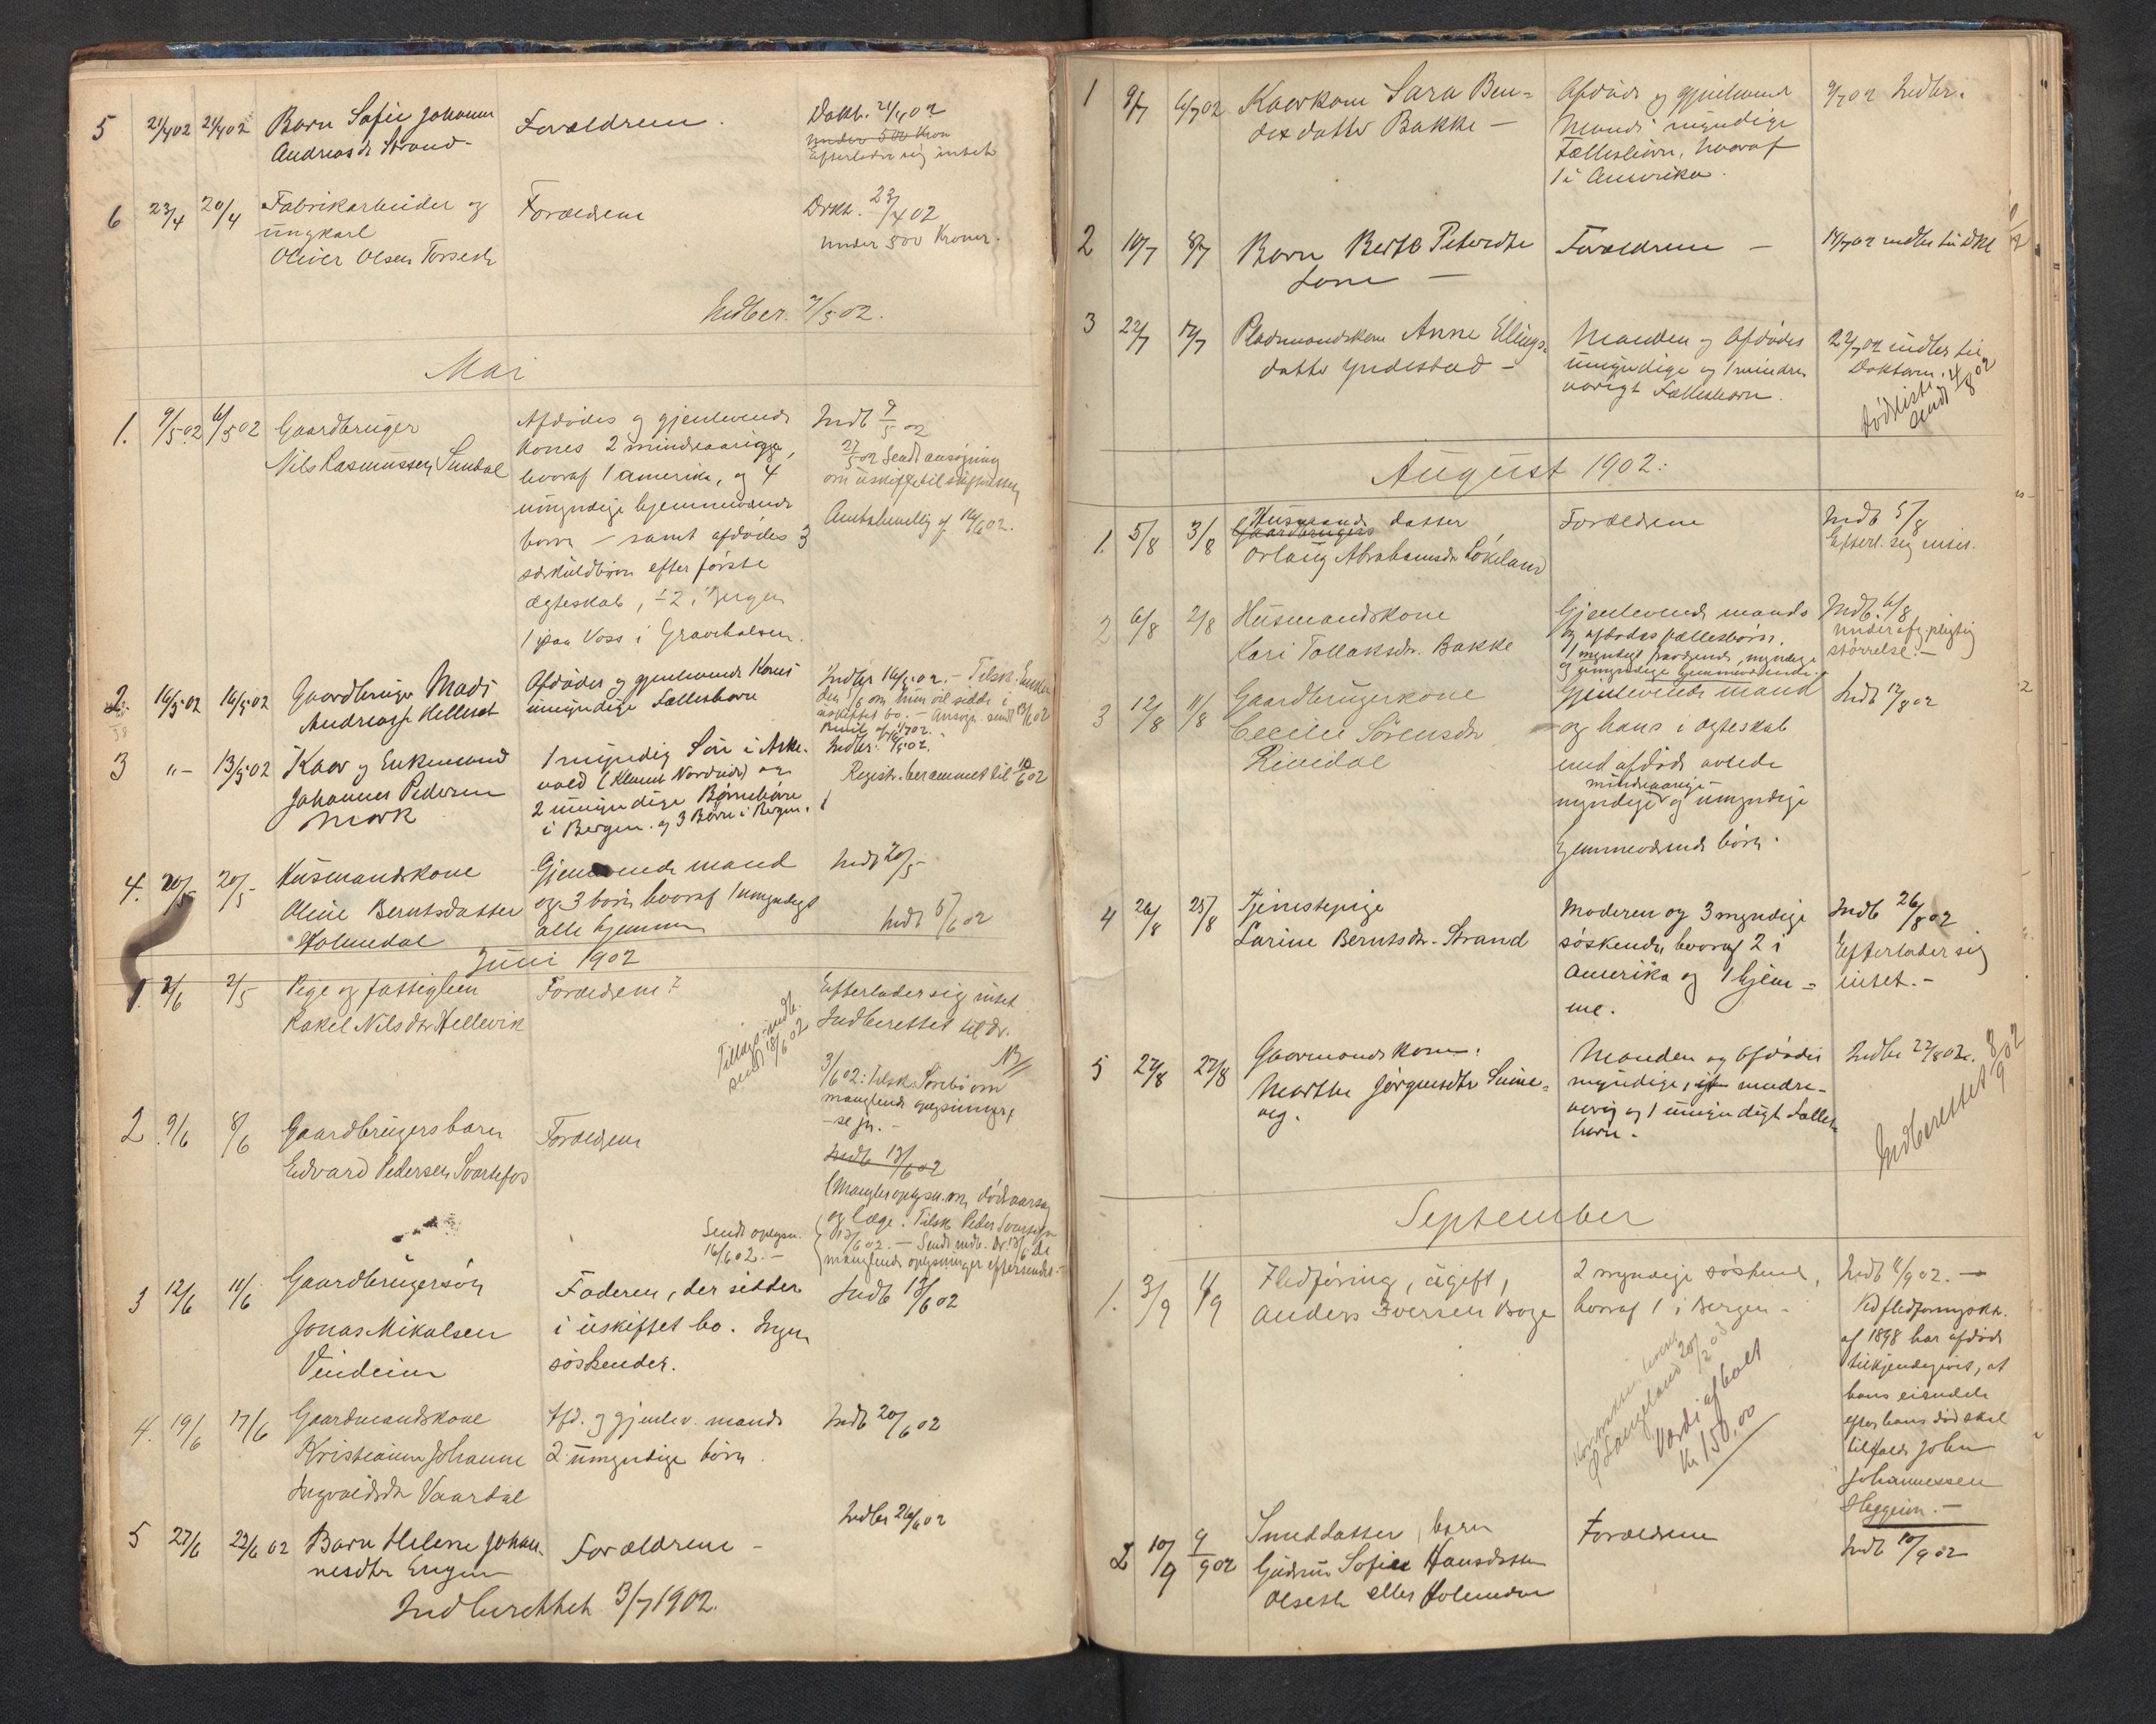 5 21/4 02 21/4 02 Barn Sofie Johanne Forældrene. Dokt. 21/4 02
Andreasdr Strand - under 500 Kron
Efterlader sig intet
6 23/4 20/4 Fabrikarbeider og Forældrene Drkt. 23/4 02
ungkarl under 500 Kroner.
Oliver Olsen
Indber. 2/5 02.
Mai
1. 9/5 02 6/5 02 Gaardbruger Afdødes og gjenlevende Indb 9/5 02
Nils Rasmussen Sundal Kones 2 mindreaarige, 27/5 02 Sendt ansøgning
hvoraf 1 amerika, og 4 om uskifte til
umyndige hjemmeværende Amtsbevillg af 14/6 02.
børn - samt afdødes 3
særkuldbørn efter første
ægteskab, 2 i Bergen
1 paa Voss i Gravehalsen.
2. 16/5 02 16/5 02 Gaardbruger Mads Afdødes og gjenlevende Kones Indbr 16/5 02. - Tilsk. Enken
Andreas Hellesæt umyndige Fællesbørn den 5/6 om hun vil sidde i
uskiftet bo. - Ansøgn. sendt 13/6 02
3 " - 13/5 02 Kaar og Enkemand 1 myndig Søn i Aske- Indbr. 16/5 02.
Johannes Pedersen vold Registr. berammet til 10/6 02
Mork 2 umyndige Børnebørn
i Bergen. og 3 Børn i Bergen.
4. 20/5 20/5 Husmandskone Gjenlevende mand Indb 20/5
Oline Berntsdatter og 3 børn hvoraf 1 umyndigt Indb 5/6 02
Holmedal alle hjemme
Juni 1902
1. 2/6 2/5 Pige og fattiglem Forældrene? Efterlader sig intet
Rakel Nilsdtr Hellevik Indberettet til dr.
Tillægs indb. sendt 18/6 02 NB
3/6 02: Tilsk. om
manglende oplysninger,
- se jn. -
2. 9/6 8/6 Gaardbrugersbarn Forældrene
Edvard Pedersen Svartefos Indb 13/6 02
(Mangler oplysn. om dødsaarsag
og læge. Tilsk. Peder
Sendt oplysn. 13/6 02. - Sendt indb. dr. 13/6 De
16/6 02. - manglende oplysninger eftersendes -
3 12/6 11/6 Gaardbrugersøn Faderen, der sidder Indb 13/6 02
Jonas Mikalsen i uskiftet bo. Ingen
Vindeim søskender.
4. 19/6 17/6 Gaardmandskone Afd. og gjenlev. mands Indb 20/6 02
Kristianne Johanne 2 umyndige børn.
Ingvaldsdtr Vaardal
Indbr 26/6 02
5 27/6 22/6 02 Barn Helene Johan- Forældrene -
nesdtr Engen
Indberettet 3/7 1902.
1 9/7 6/7 02 Kaarkone Sara Ben- Afdøde og gjenlevend 9/7 02 Indbr.
dixdatter Bakke - Mands myndige
Fællesbørn, hvoraf
1 i Amerika.
2 10/7 8/7 Barn Berte Pedersdtr Forældrene - 14/7 02 indbr til Dkt
Lone -
3 22/7 17/7 Pladsmandskone Anne Ellings- Manden og Afdødes 22/7 02 indbr til
datter Yndestad - umyndige og 1 mindre Doktoren.
aarigt Fællesbarn. Dødsliste sendt 4/8 02
August 1902:
1. 5/8 3/8 Husmands datter Forældrene Indb 5/8
Gaardbrugers Efterl. sig intet.
Orlaug Abrahamsdr Løkeland
2 6/8 2/8 Husmandskone Gjenlevende mands Indb. 6/8
Kari Tollaksdr. Bakke og afdødes fællesbørn. under afg. pligtig
1 myndigt myndige størrelse. -
og umyndige hjemmeværende.
3 12/8 11/8 Gaardbrugerkone Gjenlevende mand Indb 12/8 02
Cecilie Sørensdr og hans i ægteskab
Rivedal med afdøde avlede
mindreaarige
myndige og umyndige
hjemmeværende børn.
4 26/8 25/8 Tjenestepige Moderen og 3 myndige Indb 26/8 02
Larine Berntsdtr. Strand søskende, hvoraf 2 i Efterlader sig
Amerika og 1 hjem- intet. -
me.
5 27/8 27/8 Gaarmandskone. Manden og Afdødes Indbr 27/8 02.
Marthe Jørgensdtr myndige, mindre-
aarig og 1 umyndigt Fælles-
barn. Indberettet 8/9 02
September
1. 3/9 1/9 Fledføring, ugift, 2 myndige søskende, Indb 4/9 02. -
Anders Iversen hvoraf 1 i Bergen - Ved fledføringskt.
af 1898 har afdøde
Langeland tilkjendegivet, at
Værdi af boet hans eiendele
Kr 150,00 efter hans død skal
tilfalde John
Johannessen
Heggeim. -
2 10/9 9/9 02 Smeddatter, barn Forældrene Indb 10/9 02
Gudrun Sofie Hansdatter
Olset eller Holmedal